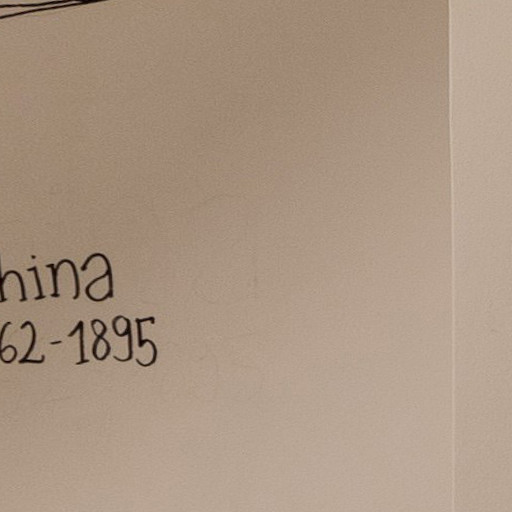 hina
62-1895